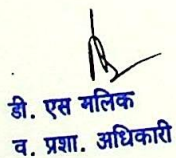 डी. एस मलिक
व. प्रशा. अधिकारी